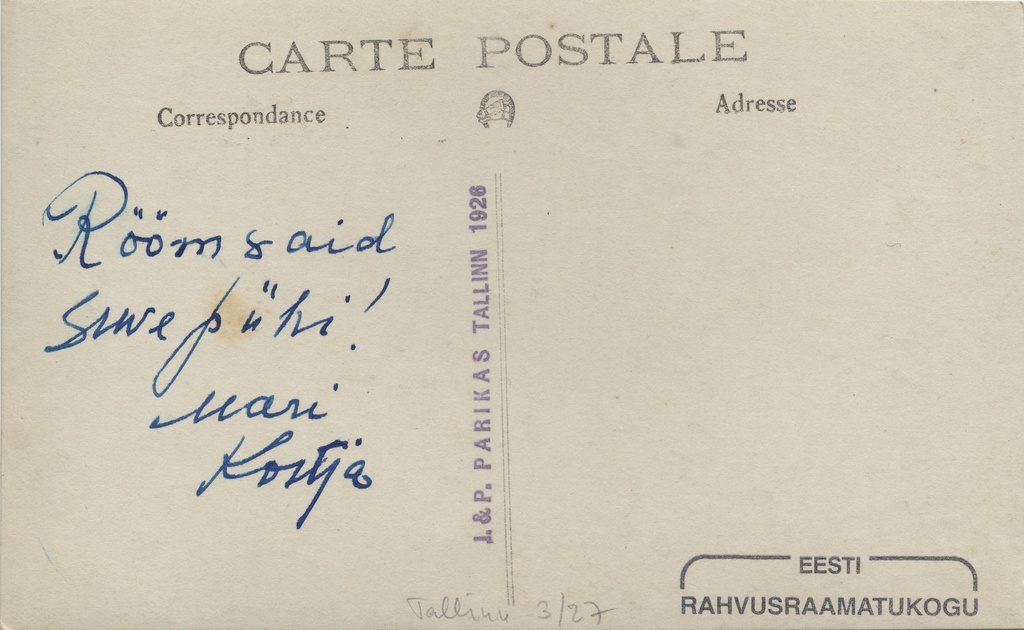 CARTE POSTALE
Correspondance
Adresse
Röömsaid
suwepühi!
Mari
Kostja
J. & P. PARIKAS TALLINN 1926
Tallinn 3/27
EESTI
RAHVUSRAAMATUKOGU